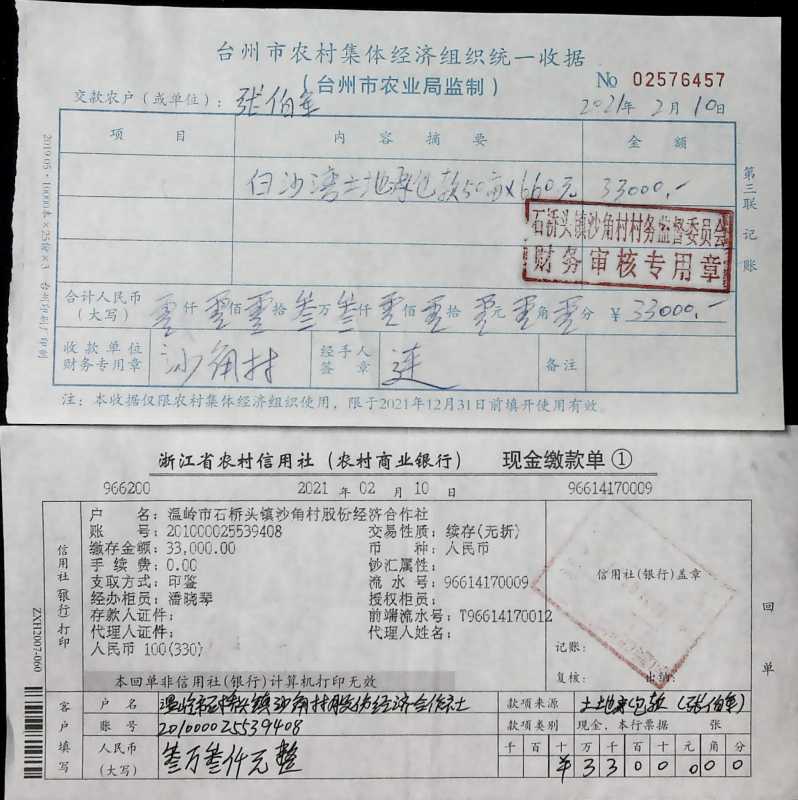 台州市农村集体经济组织统一收据
(台州市农业局监制)
No 02576457
交款农户(或单位): 张伯军
2021年2月10日
项 目 内容摘要 金额
白沙湾土地承包款50亩×660元 33000.-
石桥头镇沙角村村务监督委员会
财务审核专用章
合计人民币(大写) 零仟零佰零拾叁万叁仟零佰零拾零元零角零分 ¥33000.-
收款单位财务专用章 沙角村 经手人签章 备注
注:本收据仅限农村集体经济组织使用,限于2021年12月31日前填开使用有效。
第三联 记账
2019.05·10000本×25份×3 台州印刷厂印制
浙江省农村信用社(农村商业银行) 现金缴款单①
966200 2021 年 02 月 10 日 96614170009
户 名: 温岭市石桥头镇沙角村股份经济合作社
账 号: 201000025539408 交易性质: 续存(无折)
缴存金额: 33,000.00 币 种: 人民币
手 续 费: 0.00 钞汇属性:
支取方式: 印鉴 流 水 号: 96614170009
经办柜员: 潘晓琴 授权柜员:
存款人证件: 前端流水号: T96614170012
代理人证件: 代理人姓名:
人民币 100(330)
信用社(银行)打印
信用社(银行)盖章
记账:
复核: 出纳:
回单
本回单非信用社(银行)计算机打印无效
ZXH2007-060
客户填写
户 名 温岭市石桥头镇沙角村股份经济合作社 款项来源 土地承包款(张伯军)
账 号 201000025539408 款项类别 现金、本行票据 张
人民币(大写) 叁万叁仟元整 千百十万千百十元角分
¥3300000